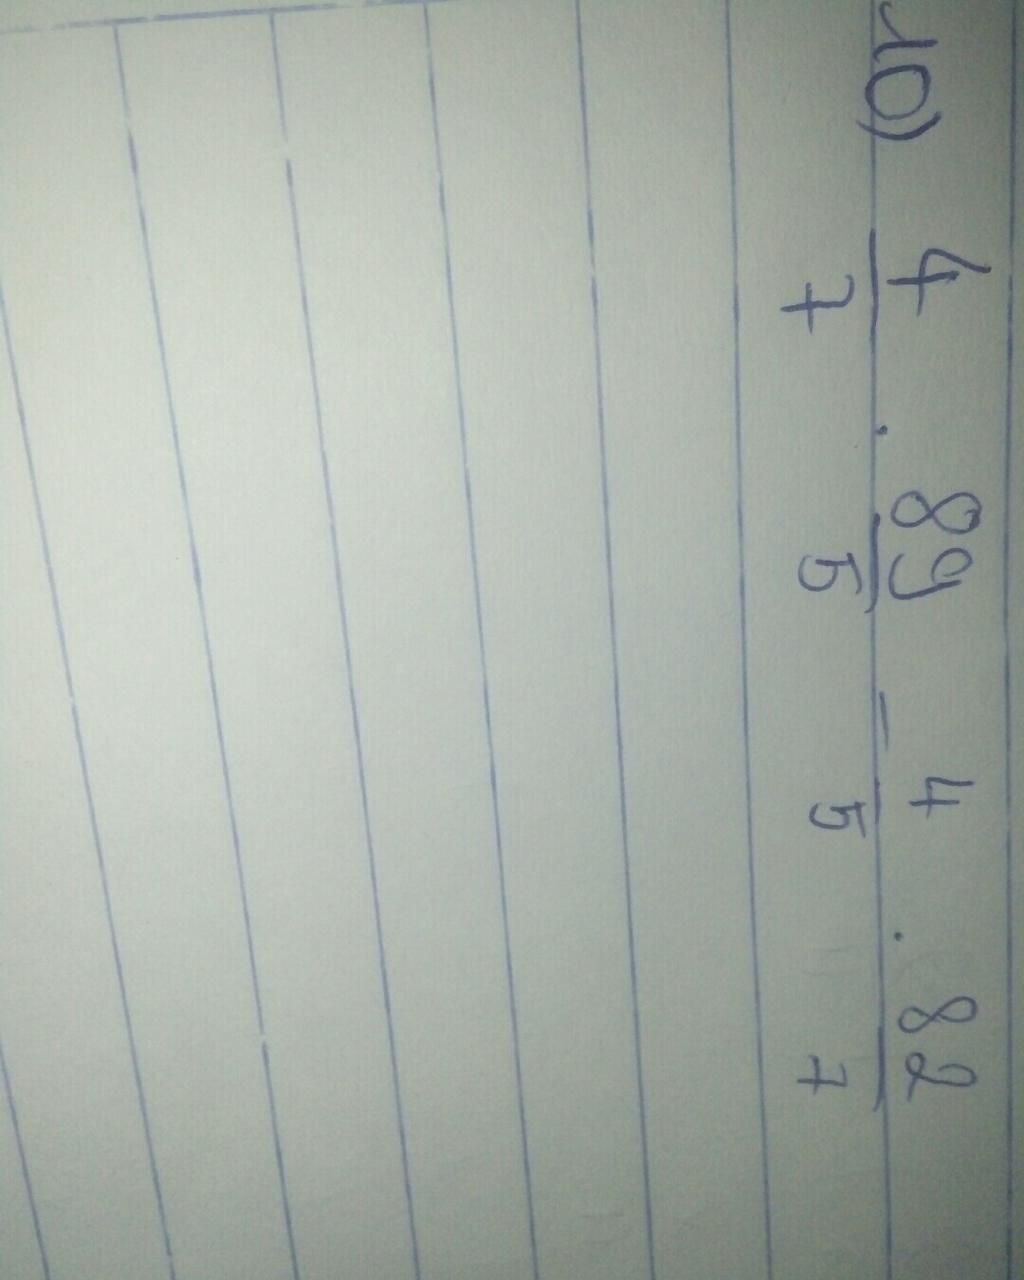 10) 4/7 . 89/5 - 4/5 . 82/7